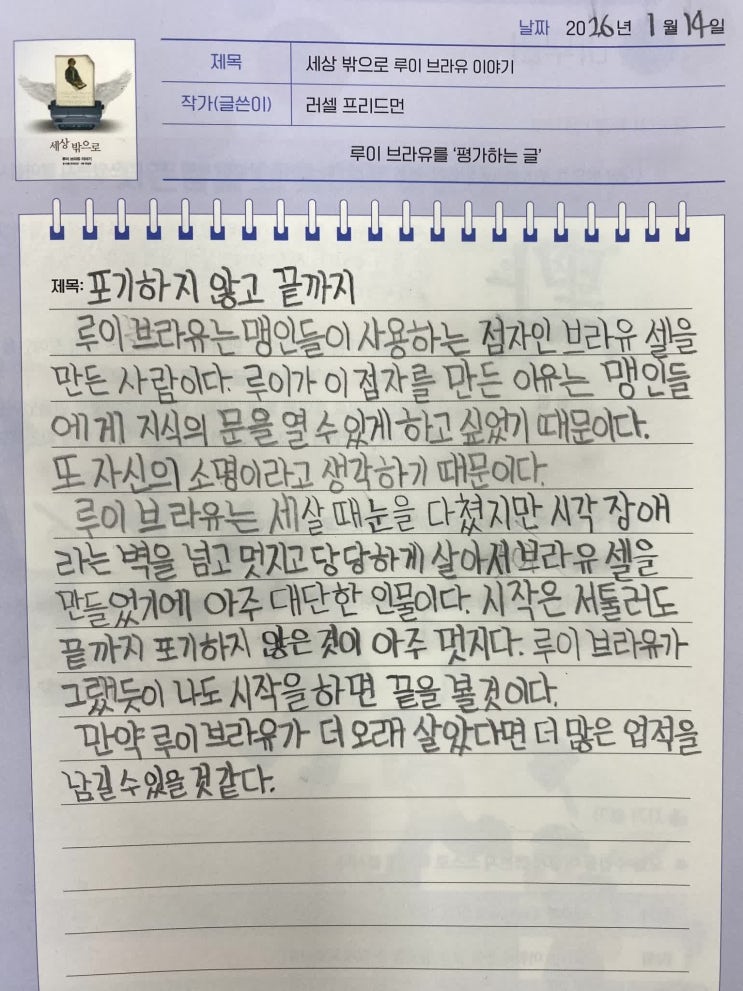 날짜 2026년 1월 14일
제목 세상 밖으로 루이 브라유 이야기
작가(글쓴이) 러셀 프리드먼
세상 밖으로
루이 브라유 이야기
루이 브라유를 '평가하는 글'
제목: 포기하지 않고 끝까지
루이 브라유는 맹인들이 사용하는 점자인 브라유 셀을
만든 사람이다. 루이가 이 점자를 만든 이유는 맹인들
에게 지식의 문을 열 수 있게 하고 싶었기 때문이다.
또 자신의 소명이라고 생각하기 때문이다.
루이 브라유는 세살 때 눈을 다쳤지만 시각 장애
라는 벽을 넘고 멋지고 당당하게 살아서 브라유 셀을
만들었기에 아주 대단한 인물이다. 시작은 서툴러도
끝까지 포기하지 않은 것이 아주 멋지다. 루이 브라유가
그랬듯이 나도 시작을 하면 끝을 볼 것이다.
만약 루이 브라유가 더 오래 살았다면 더 많은 업적을
남길 수 있을 것 같다.